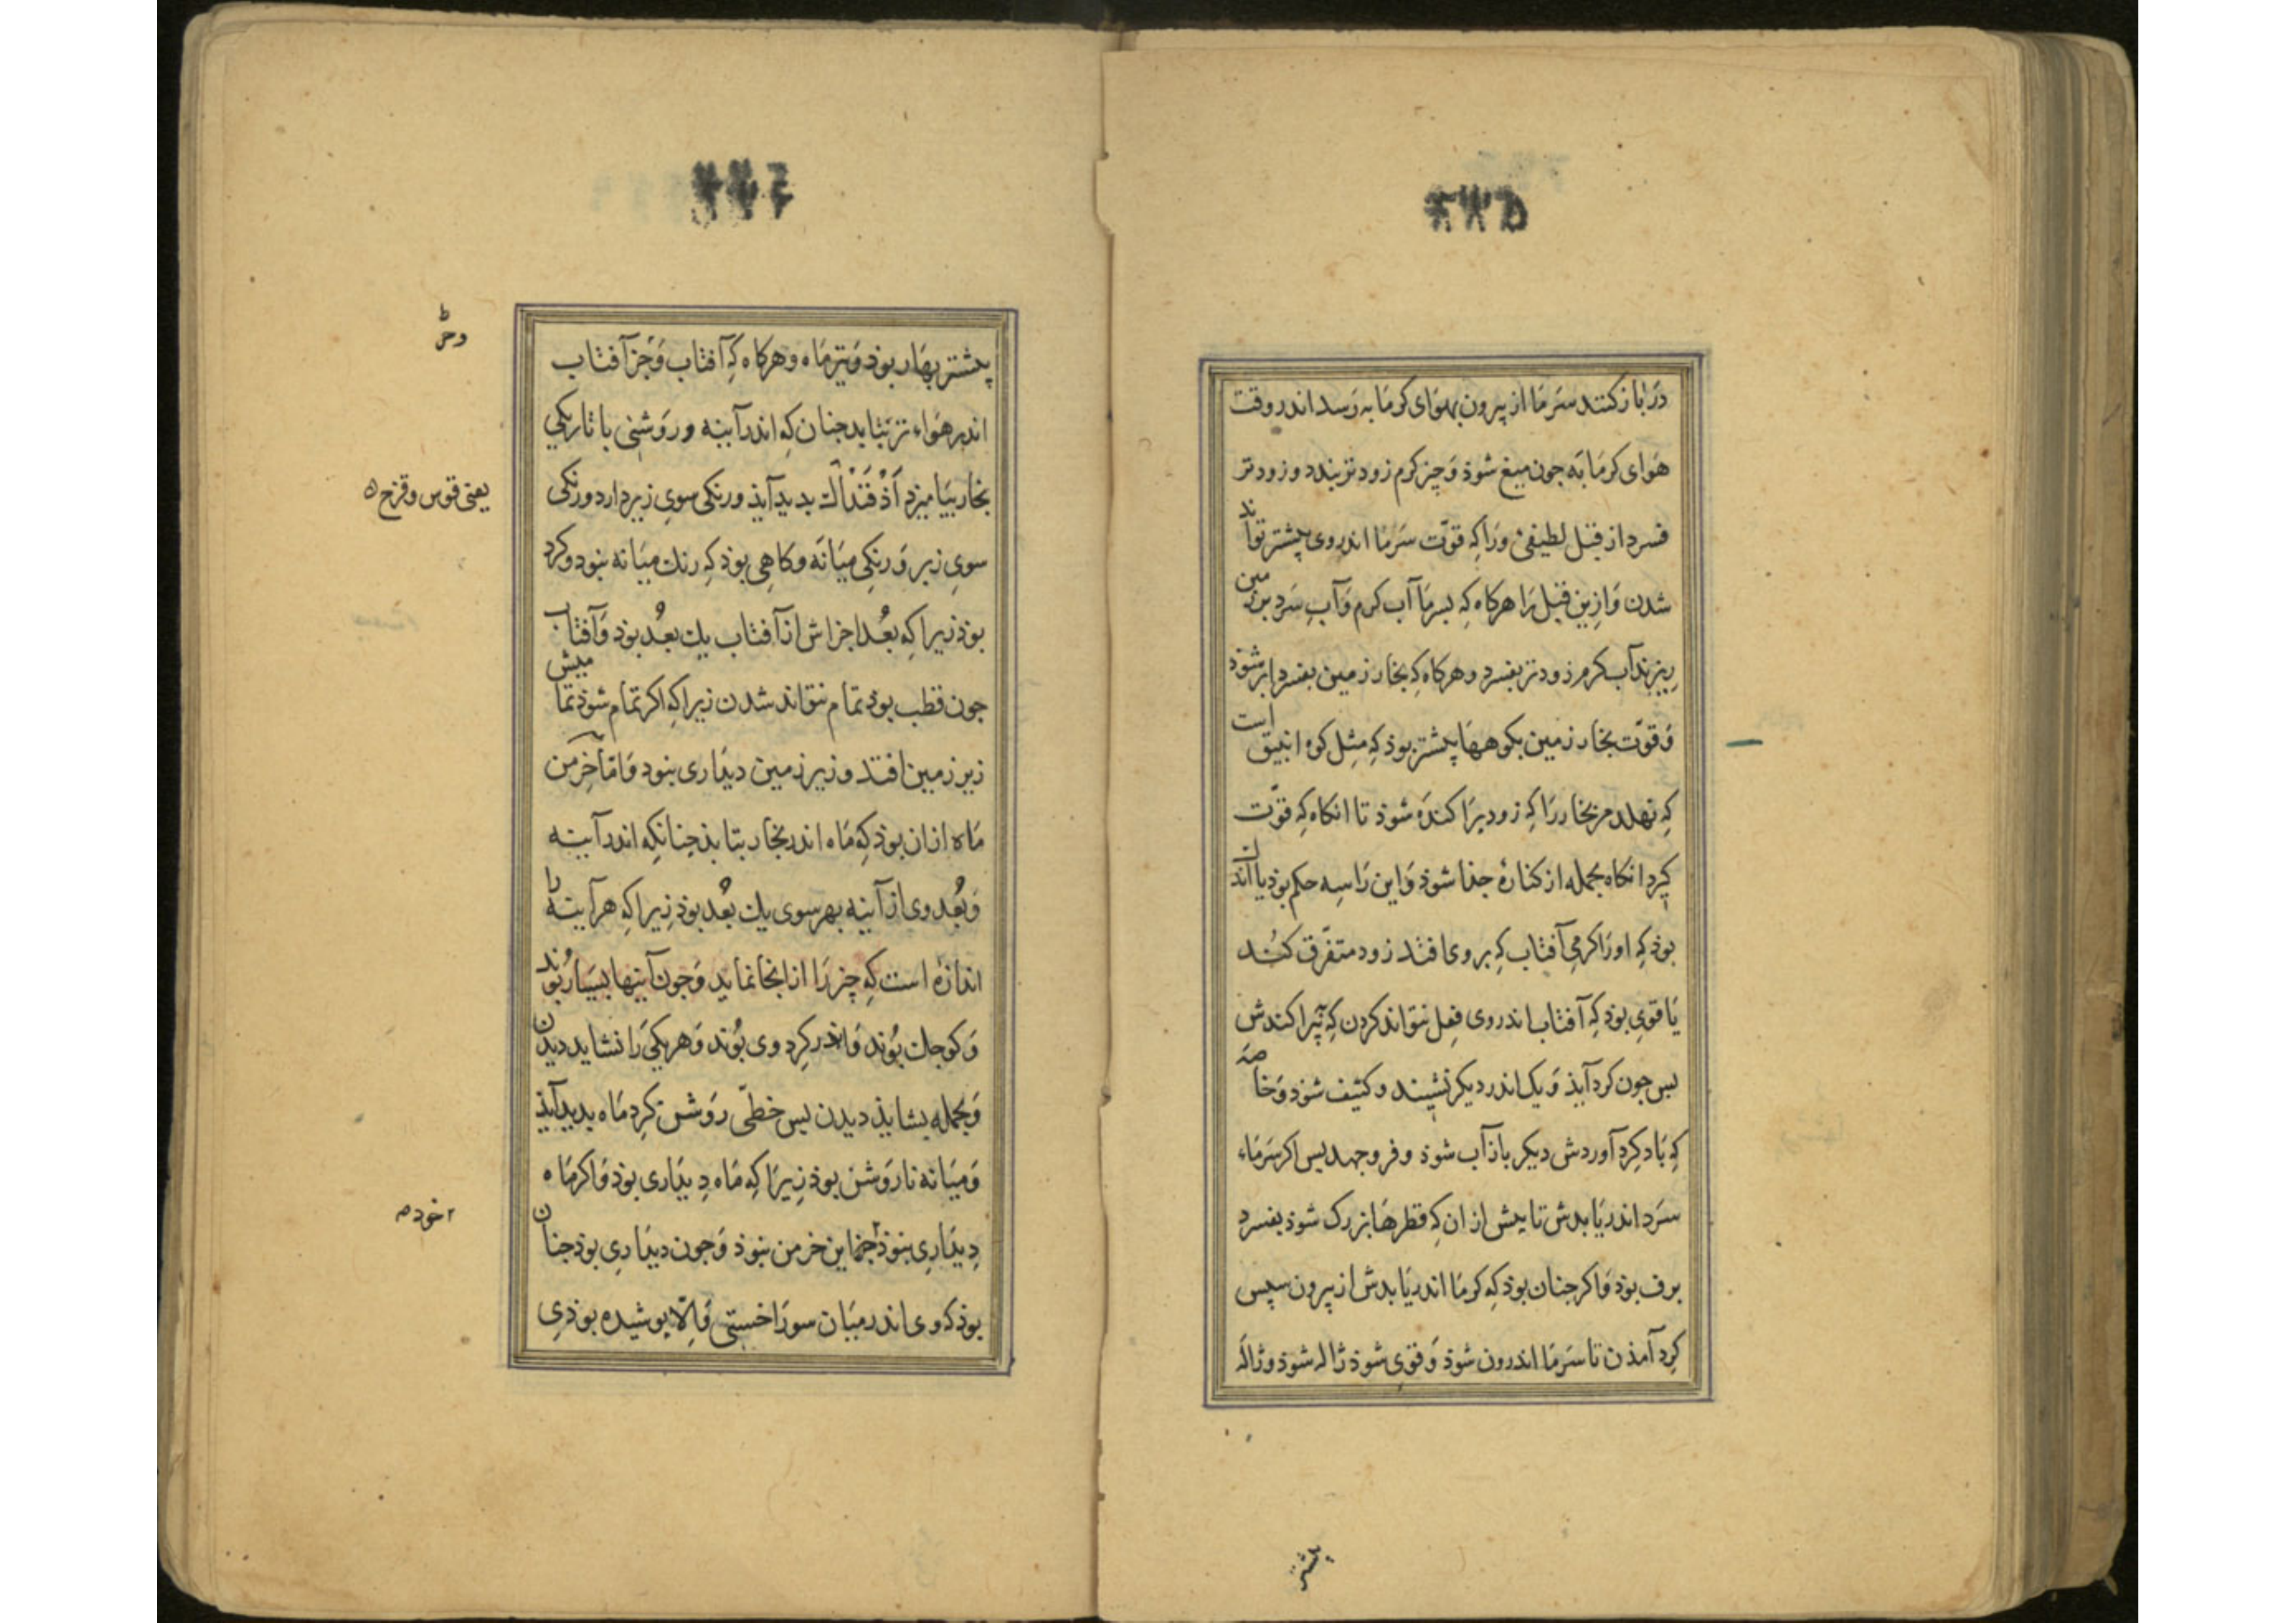 در باز کنند سرما از بیرون بهوای کرمابه رسد اندر وقت
هوای کرمابه جون میغ شوذ وچیز کرم زودتر بندد و زودتر
فسرد از قبل لطیفیٔ ورا که قوّت سرما اندر وی بیشتر تواند
شدن وازین قبل را هرکاه که بسرما آب کرم وآب سرد برزمین
ریزند آب کرم زودتر بفسرد وهرکاه که بخار زمین بفسرد ابر شوذ
وقوّت بخار زمین بکوهها بیشتر بوذ که مثل کوه انبیق است
که نهلد مر بخار را که زود پراکنده شوذ تا انکاه که قوّت
کیرد انکاه بجمله از کنارهٔ جذا شوذ واین را سه حکم بوذ یا اندک
بوذ که اورا کرمی آفتاب که بر وی افتد زود متفرّق کند
یا قوی بوذ که آفتاب اندر وی فعل نتواند کردن که بپراکندش
بس جون کرد آیذ ویک اندر دیکر نشیند وکثیف شوذ وخاصه
که باد کرد آوردش دیکر باز آب شوذ وفرو جهد بس اکر سرماء
سرد اندر یابدش تا بیش از ان که قطرها بزرک شوذ بفسرد
برف بوذ واکر جنان بوذ که کرما اندر یابدش از بیرون سپس
کرد آمذن تا سرما اندرون شوذ وقوی شوذ ژاله شوذ وژاله
بیشتر
بیشتر بهار بوذ وتیرماه وهرکاه که آفتاب وجز آفتاب
اندر هواء تر بتابد جنان که اندر آیینه وروشنی با تاریکی
بخار بیامیزد آذفنداک بدید آیذ ورنکی سوی زیر دارد ورنکی
یعنی قوس وقزح
سوی زبر ورنکی میانه وکاهی بوذ که رنک میانه نبود وکرد
بوذ زیرا که بعد اجزاش از آفتاب یک بعد بوذ وآفتاب
جون قطب بوذ تمام نتواند شدن زیرا که اکر تمام شوذ تمامیش
زیر زمین افتد وزیر زمین دیداری نبود واما خرمن
ماه از ان بوذ که ماه اندر بخار بتابذ جنانکه اندر آیینه
وبعد وی از آیینه بهر سوی یک بعد بوذ زیرا که هر آیینه را
اندازهٔ است که چیز را از انجا نماید وجون آینها بسیار بوند
وکوجک بوند واندر کرد وی بوند وهر یکی را نشاید دیدن
وبجمله بشایذ دیدن بس خطّی روشن کرد ماه بدید آیذ
ومیانه نا روشن بوذ زیرا که ماه دیداری بوذ واکر ماه
دیداری نبوذ این خرمن نبوذ وجون دیداری بوذ جنان
خود
بوذ که وی اندر میان سوراخستی والّا بوشیده بوذی